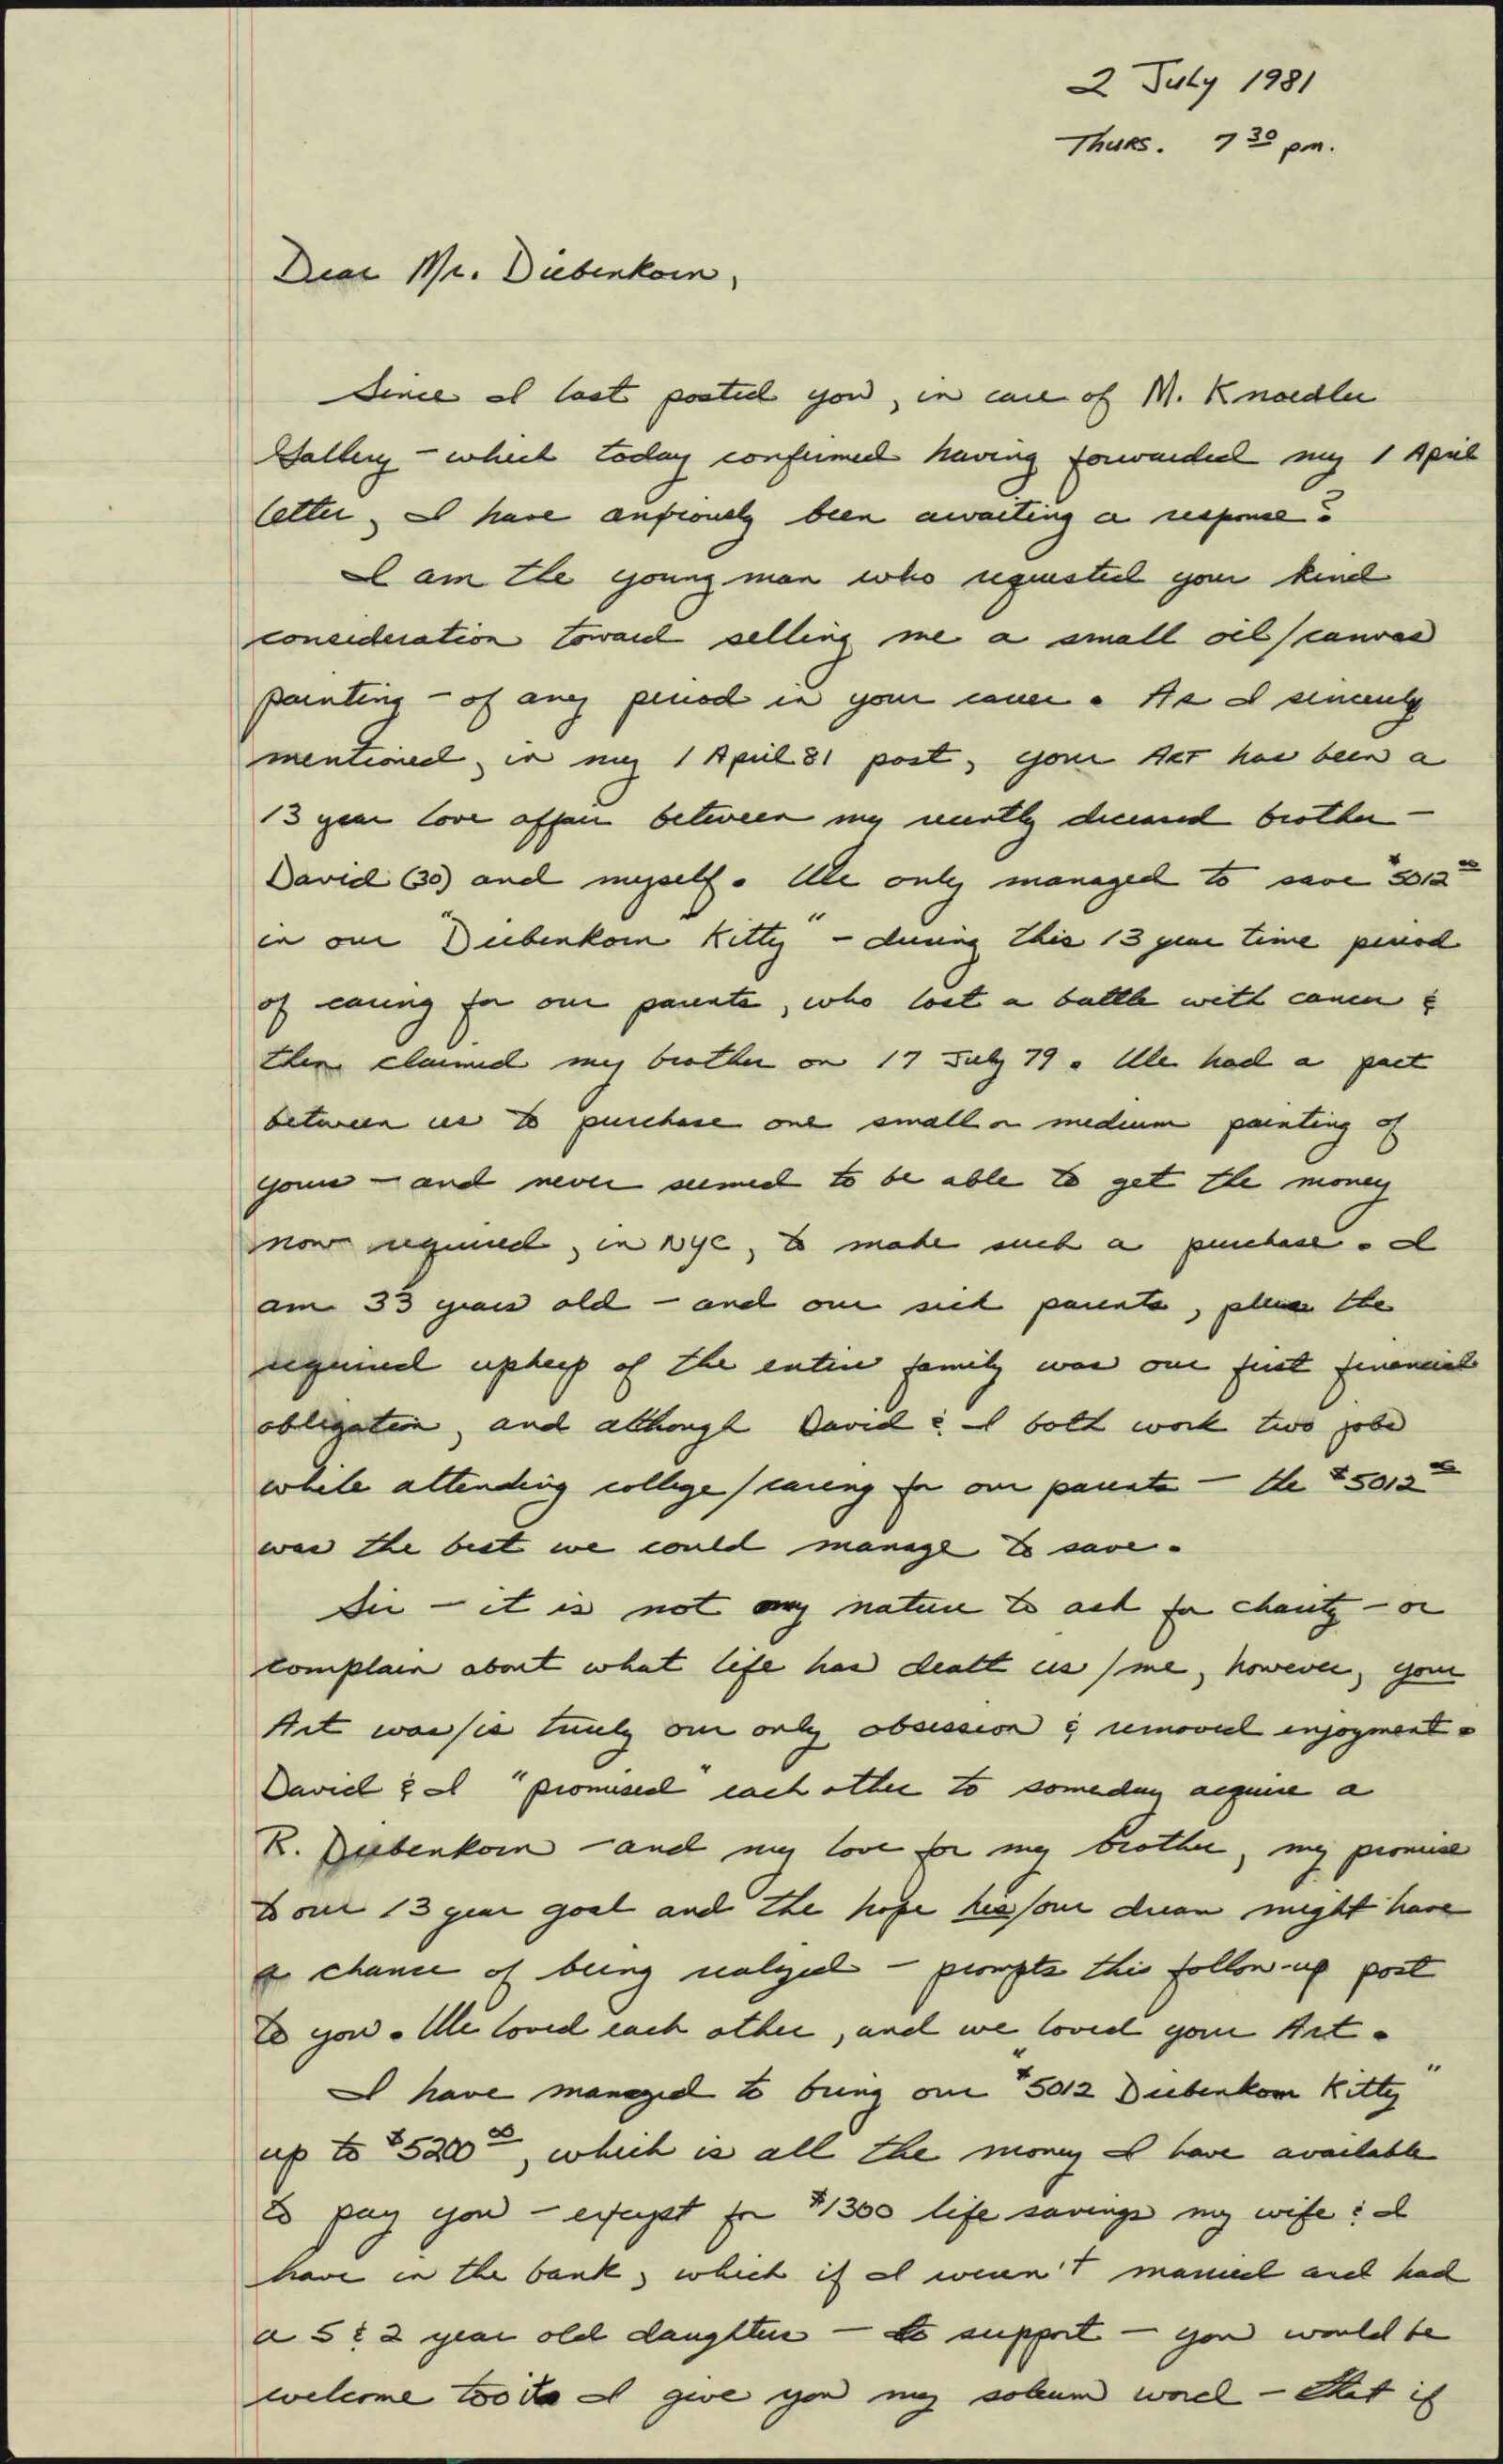 2 July 1981
Thurs. 7 30 pm.
Dear Mr. Diebenkorn,
Since I last posted you, in care of M. Knoedler
Gallery - which today confirmed having forwarded my 1 April
letter, I have anxiously been awaiting a response?
I am the young man who requested your kind
consideration toward selling me a small oil/canvas
painting - of any period in your career. As I sincerely
mentioned, in my 1 April 81 post, your ART has been a
13 year love affair between my recently deceased brother -
David (30) and myself. We only managed to save $5012 00
in our "Diebenkorn Kitty" - during this 13 year time period
of caring for our parents, who lost a battle with cancer &
then claimed my brother on 17 July 79. We had a pact
between us to purchase one small or medium painting of
yours - and never seemed to be able to get the money
now required, in NYC, to make such a purchase. I
am 33 years old - and our sick parents, plus the
required upkeep of the entire family was our first financial
obligation, and although David & I both work two jobs
while attending college/caring for our parents - the $5012 00
was the best we could manage to save.
Sir - it is not my nature to ask for charity - or
complain about what life has dealt us/me, however, your
Art was/is truely our only obsession & removed enjoyment.
David & I "promised" each other to someday acquire a
R. Diebenkorn - and my love for my brother, my promise
to our 13 year goal and the hope his/our dream might have
a chance of being realized - prompts this follow-up post
to you. We loved each other, and we loved your Art.
I have managed to bring our "$5012 Diebenkorn Kitty"
up to $5200 00, which is all the money I have available
to pay you - except for $1300 life savings my wife & I
have in the bank, which if I weren't married and had
a 5 & 2 year old daughters - to support - you would be
welcome too it. I give you my solemn word - that if